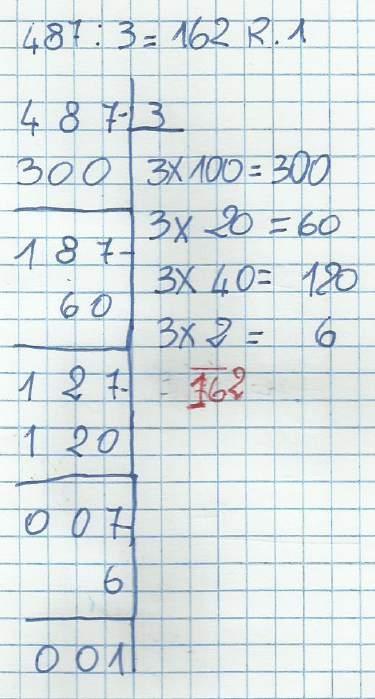 487 : 3 = 162 R. 1
487- 3
300 3x100=300
187- 3x 20 =60
60 3x 40= 120
127- 3x2 = 6
120 162
007
6
001